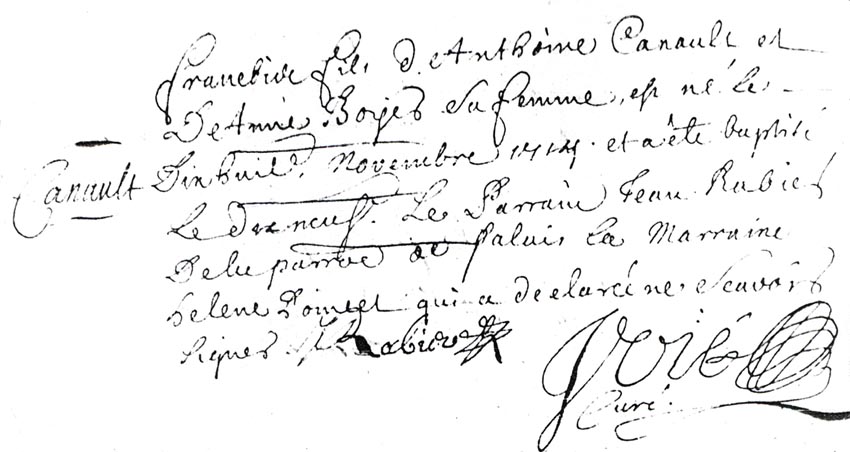 francbise fils d. Anthoine Canault et
De Anne Boijes sa femme, est né le
Canault
Dixhuit. Novembre 1714. et a été baptisé
Le dix neuf. Le Parrain Jean Rabies
De la parroe de Palais La Marraine
helene qui a declaré ne scavoir
signer Rabier
Curé.